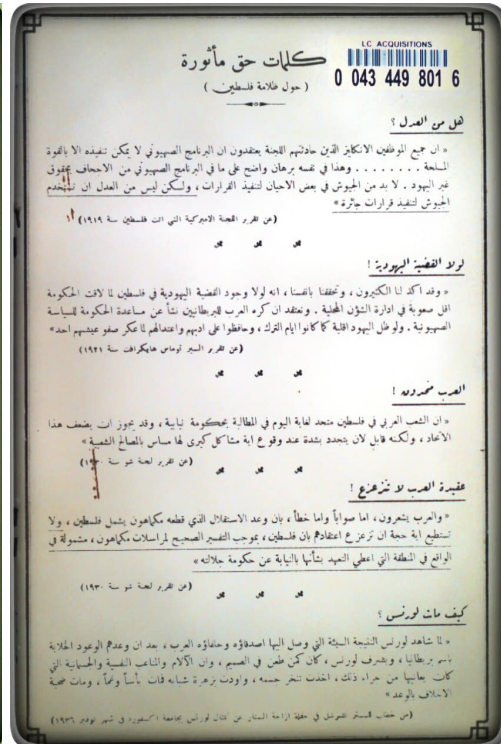 LC ACQUISITIONS
0 043 449 801 6
كلمات حق مأثورة
( حول ظلامة فلسطين )
هل من العدل ؟
« ان جميع الموظفين الانكليز الذين حادثتهم اللجنة يعتقدون ان البرنامج الصهيوني لا يمكن تنفيذه الا بالقوة
المسلحة . . . . . . . . وهذا في نفسه برهان واضح على ما في البرنامج الصهيوني من الاجحاف بحقوق
غير اليهود . لا بد من الجيوش في بعض الاحيان لتنفيذ القرارات ، ولكن ليس من العدل ان تستخدم
الجيوش لتنفيذ قرارات جائرة »
(عن تقرير اللجنة الاميركية التي اتت فلسطين سنة ١٩١٩)
لولا القضية اليهودية !
« وقد اكد لنا الكثيرون ، وتحققنا بانفسنا ، انه لولا وجود القضية اليهودية في فلسطين لما لاقت الحكومة
اقل صعوبة في ادارة الشؤن المحلية . ونعتقد ان كره العرب للبريطانيين نشأ عن مساعدة الحكومة للسياسة
الصهيونية . ولو ظل اليهود اقلية كما كانوا ايام الترك ، وحافظوا على ادبهم واعتدالهم لما عكر صفو عيشهم احد»
(عن تقرير السير توماس هايكرافت سنة ١٩٢١)
العرب متحدون !
« ان الشعب العربي في فلسطين متحد لغاية اليوم في المطالبة بحكومة نيابية ، وقد يجوز ان يضعف هذا
الاتحاد ، ولكنه قابل لان يتجدد بشدة عند وقوع اية مشاكل كبرى لها مساس بالمصالح الشعبية »
(عن تقرير لجنة شو سنة ١٩٣٠)
عقيدة العرب لا تتزعزع !
« والعرب يشعرون ، اما صواباً واما خطأ ، بان وعد الاستقلال الذي قطعه مكماهون يشمل فلسطين ، ولا
تستطيع اية حجة ان تزعزع اعتقادهم بان فلسطين ، بموجب التفسير الصحيح لمراسلات مكماهون ، مشمولة في
الواقع في المنطقة التي اعطي التعهد بشأنها بالنيابة عن حكومة جلالته »
(عن تقرير لجنة شو سنة ١٩٣٠)
كيف مات لورنس ؟
« لما شاهد لورنس النتيجة السيئة التي وصل اليها اصدقاؤه وحلفاؤه العرب ، بعد ان وعدهم الوعود الخلابة
باسم بريطانيا ، وبشرف لورنس ، كان كمن طعن في الصميم ، وان الآلام والمتاعب النفسية والجسمانية التي
كان يعانيها من جراء ذلك ، اخذت تنخر جسمه ، واودت بزهرة شبابه فمات بأساً وغماً ، ومات ضحية
الاخلاف بالوعد »
(من خطاب المستر تشرشل في حفلة ازاحة الستار عن تمثال لورنس بجامعة اكسفورد في شهر نوفمبر ١٩٣٦)